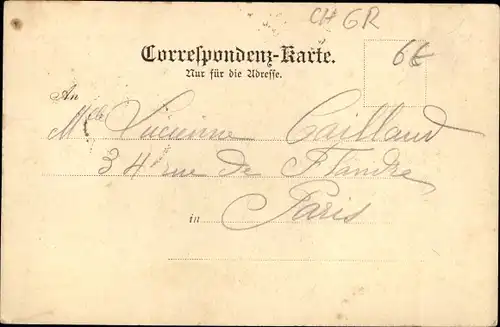 CH GR
6€
Correspondenz-Karte.
Nur für die Adresse.
An
Mlle Lucienne Caillaud
34 rue de Flandre
in Paris